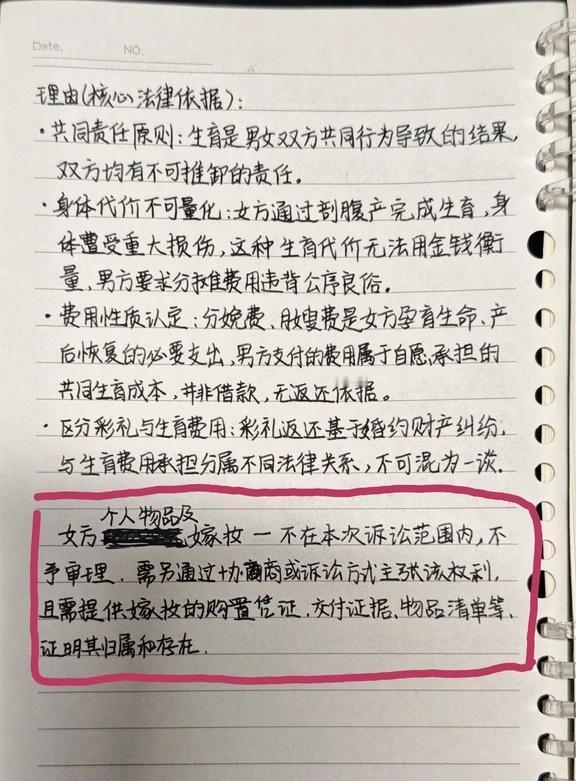 Date. NO.
理由(核心法律依据):
·共同责任原则:生育是男女双方共同行为导致的结果,
双方均有不可推卸的责任。
·身体代价不可量化:女方通过剖腹产完成生育,身
体遭受重大损伤,这种生育代价无法用金钱衡
量,男方要求分摊费用违背公序良俗。
·费用性质认定:分娩费、月嫂费是女方孕育生命、产
后恢复的必要支出,男方支付的费用属于自愿承担的
共同生育成本,并非借款,无返还依据。
·区分彩礼与生育费用:彩礼返还基于婚约财产纠纷,
与生育费用承担分属不同法律关系,不可混为一谈.
个人物品及
女方嫁妆一不在本次诉讼范围内,不
予审理.需另通过协商或诉讼方式主张该权利,
且需提供嫁妆的购置凭证、交付证据、物品清单等,
证明其归属和存在.